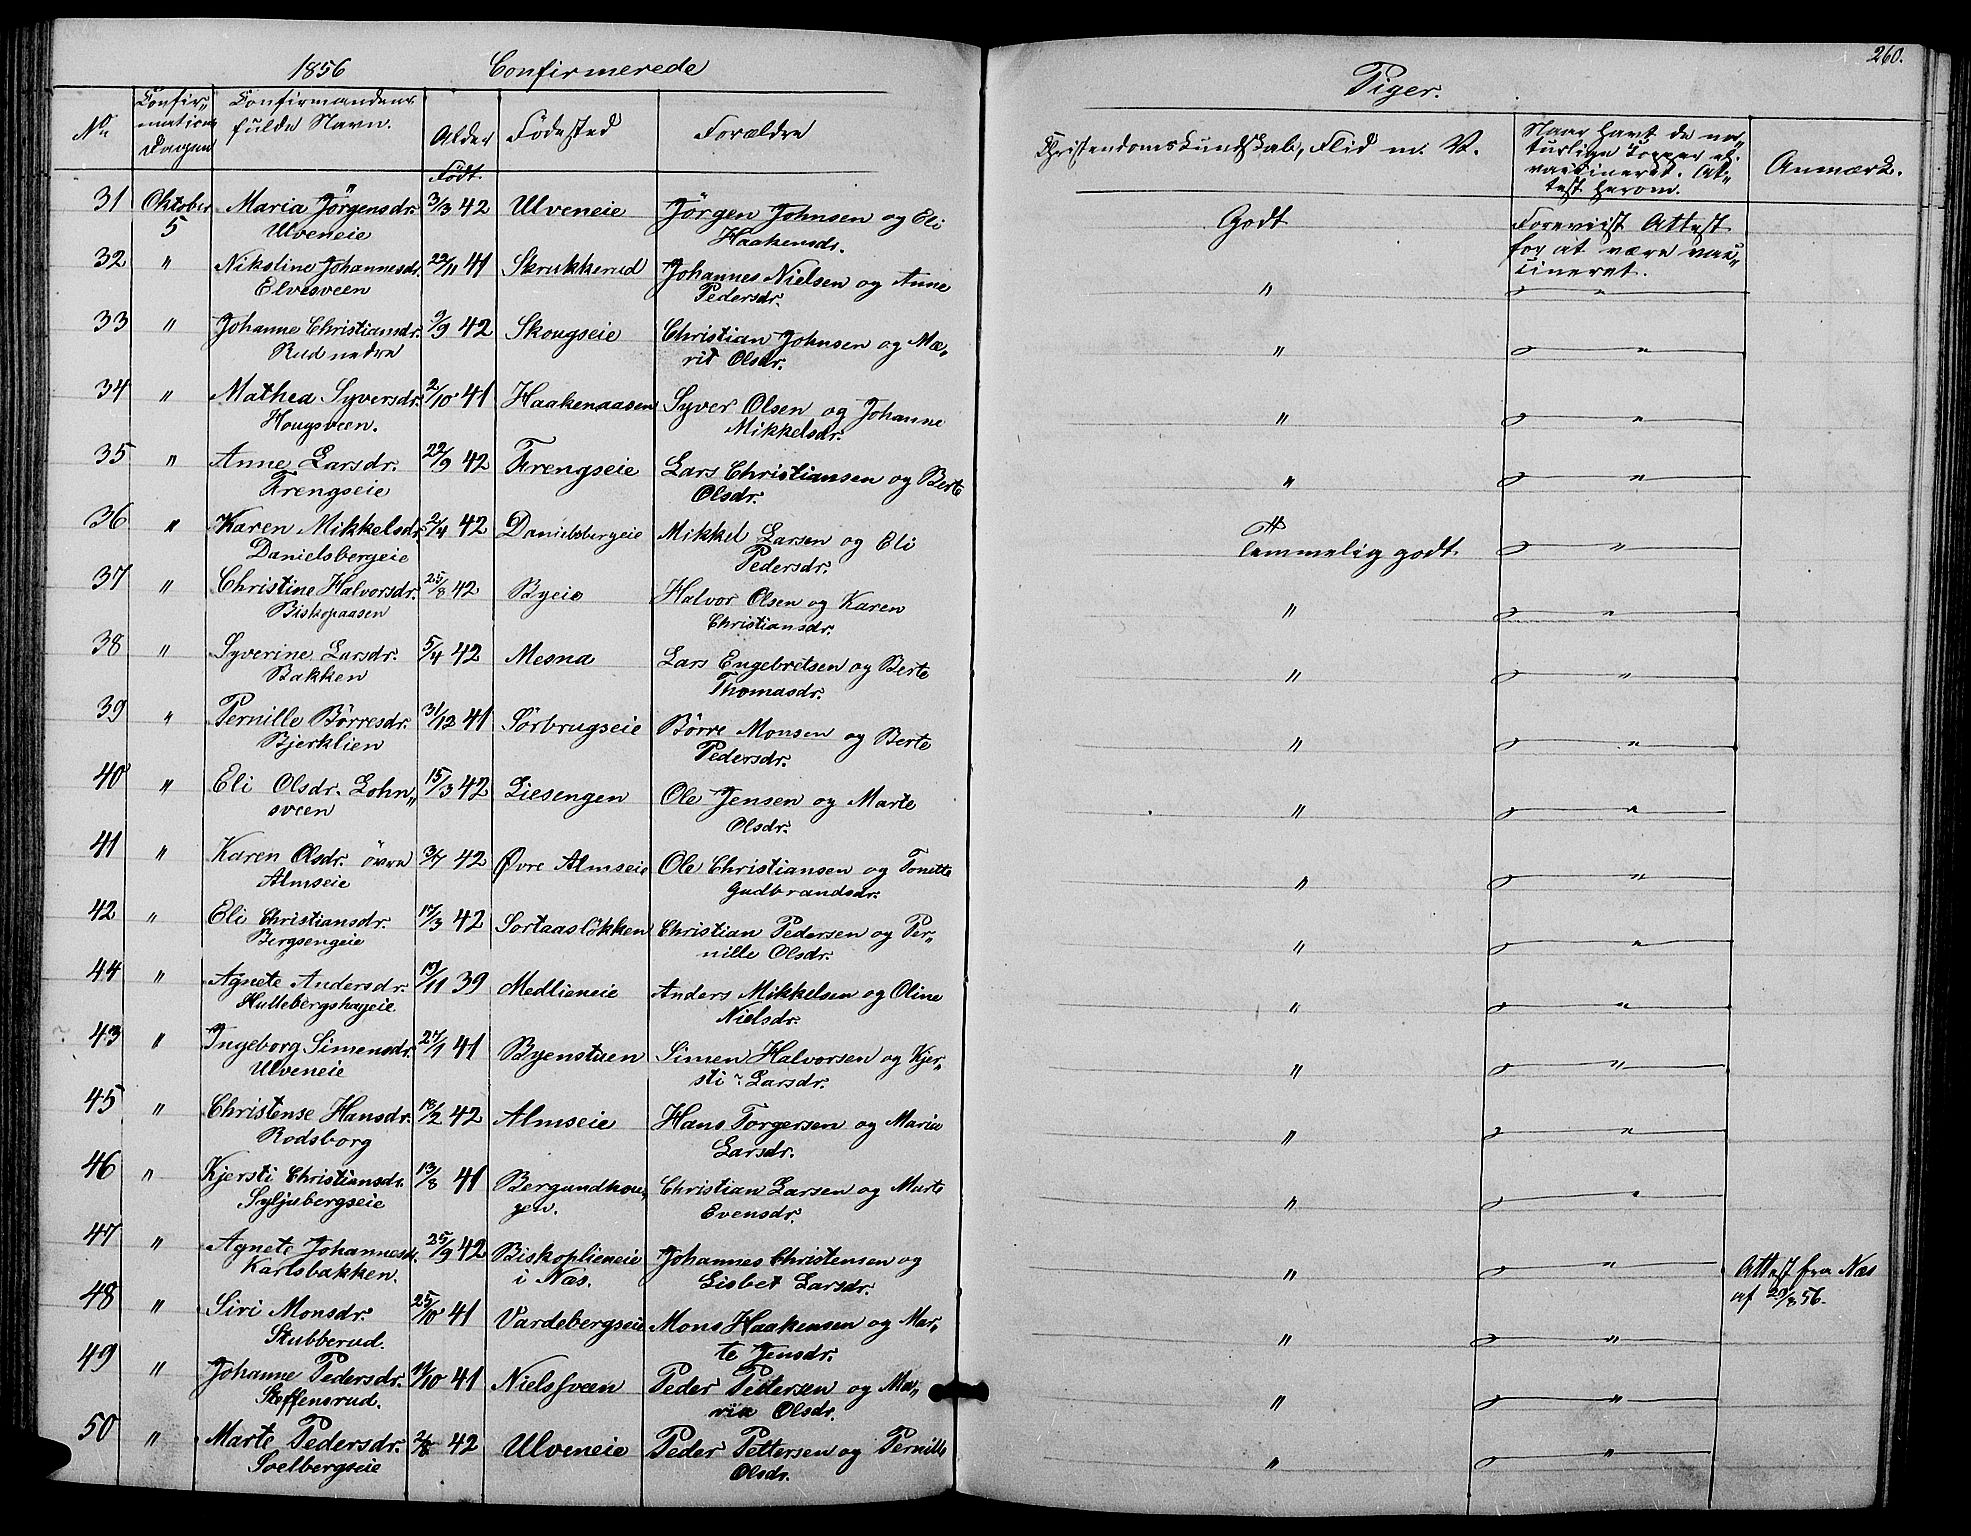 1856 Confirmerede
Piger. 260.
No. Confirmations Dagen Confirmandens fulde Navn. Alder Født. Fødested Forældre Christendoms Kundskab, Flid m. V. Naar havt de naturlige Kopper el. vaccineret. Attest herom. Anmærk.
31 Oktober Maria Jörgensdr. 3/3 42 Ulveneie Jörgen Johnsen og Eli Godt Foreviist Attest
5 Ulveneie Haakensdr. for at være vac„
cineret.
32 " Nikoline Johannesd. 22/11 41 Skrukkerud Johannes Nielsen og Anne " "
Elvesveen Pedersdr.
33 " Johanne Christiansdr. 9/9 42 Skougseie Christian Johnsen og Ma„ " "
Rud nedre rit Olsdr.
34 " Mathea Syversdr. 2/10 41 Haakenaasen Syver Olsen og Johanne " "
Hougsveen. Mikkelsdr.
35 " Anne Larsdr. 22/9 42 Frengseie Lars Christiansen og Berte " "
Frengseie Olsdr.
36 " Karen Mikkelsdr. 2/4 42 Danielsbergeie Mikkel Larsen og Eli Temmelig godt. "
Danielsbergeie Pedersdr.
37 " Christine Halvorsdr. 25/8 42 Byeie Halvor Olsen og Karen " "
Biskopaasen Christiansdr.
38 " Syverine Larsdr. 5/4 42 Mesna Lars Engebretsen og Berte " "
Bakken Thomasdr.
39 " Pernille Börresdr. 31/12 41 Sörbrugseie Börre Monsen og Berte " "
Bjerklien Pedersdr.
40 " Eli Olsdr. Lohn„ 15/3 42 Liesengen Ole Jensen og Marte " "
sveen Olsdr.
41 " Karen Olsdr. övre 3/7 42 Øvre Almseie Ole Christiansen og Tonette " "
Almseie Gudbrandsdr.
42 " Eli Christiansdr. 17/3 42 Sortaaslökken Christian Pedersen og Per„ " "
Bergsengeie nille Olsdr.
44 " Agnete Andersdr. 19/11 39 Medlieneie Anders Mikkelsen og Oline " "
Hullebergshageie Nielsdr.
43 " Ingeborg Simensdr. 27/1 41 Byenstuen Simen Halvorsen og Kjer„ " "
Ulveneie sti Larsdr.
45 " Christense Hansdr. 18/2 42 Almseie Hans Torgersen og Maria " "
Rodsborg Larsdr.
46 " Kjersti Christiansdr. 13/8 41 Bergundhou„ Christian Larsen og Marte " "
Syljubergseie gen. Evensdr.
47 " Agnete Johannesd. 25/9 42 Biskoplieneie Johannes Christensen og " " Attest fra Næs
Karlsbakken. i Næs. Lisbet Larsdr. af 29/8 56.
48 " Siri Monsdr. 25/10 41 Vardebergseie Mons Haakensen og Mar„ " "
Stubberud. te Jensdr.
49 " Johanne Pedersdr. 11/10 41 Nielssveen Peder Pettersen og Ma„ " "
Steffensrud. ria Olsdr.
50 " Marte Pedersdr. 2/8 42 Ulveneie Peder Pettersen og Pernille " "
Soelbergseie Olsdr.